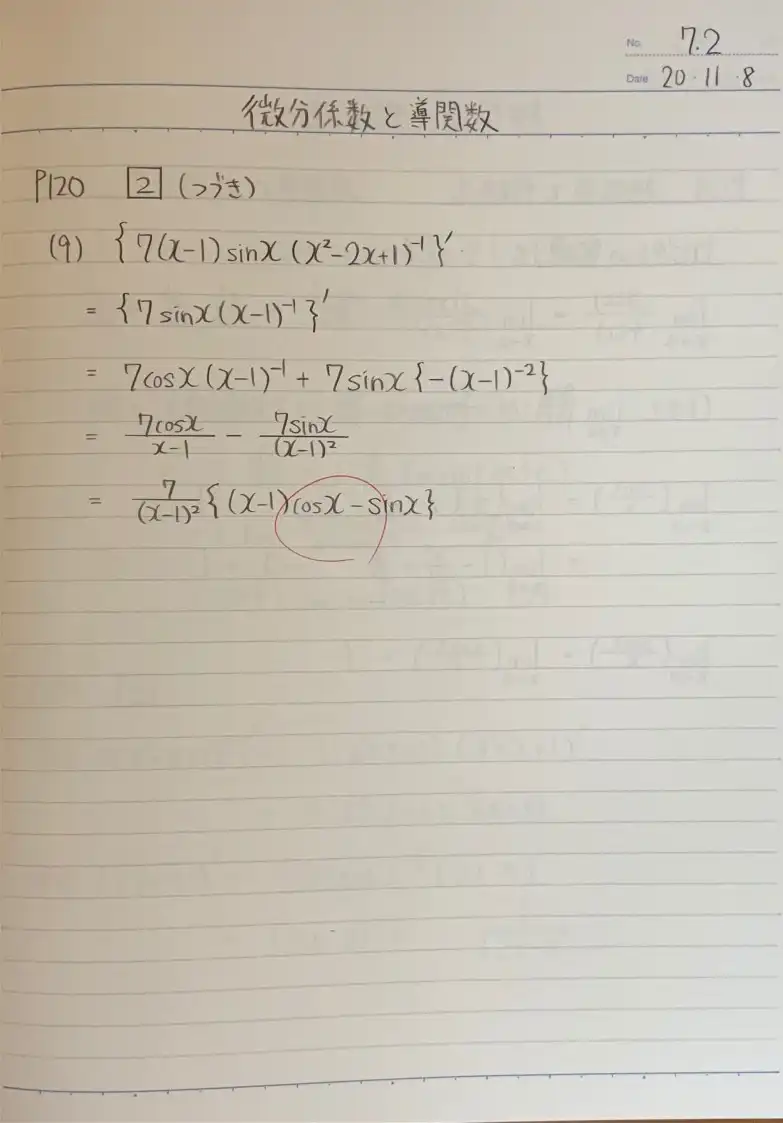 No. 7.2
Date 20・11・8
微分係数と導関数
P120 2 (つづき)
(9) {7(x-1)sinx(x²-2x+1)⁻¹}′
= {7sinx(x-1)⁻¹}′
= 7cosx(x-1)⁻¹ + 7sinx{-(x-1)⁻²}
= 7cosx/(x-1) - 7sinx/(x-1)²
= 7/(x-1)² {(x-1)cosx - sinx}